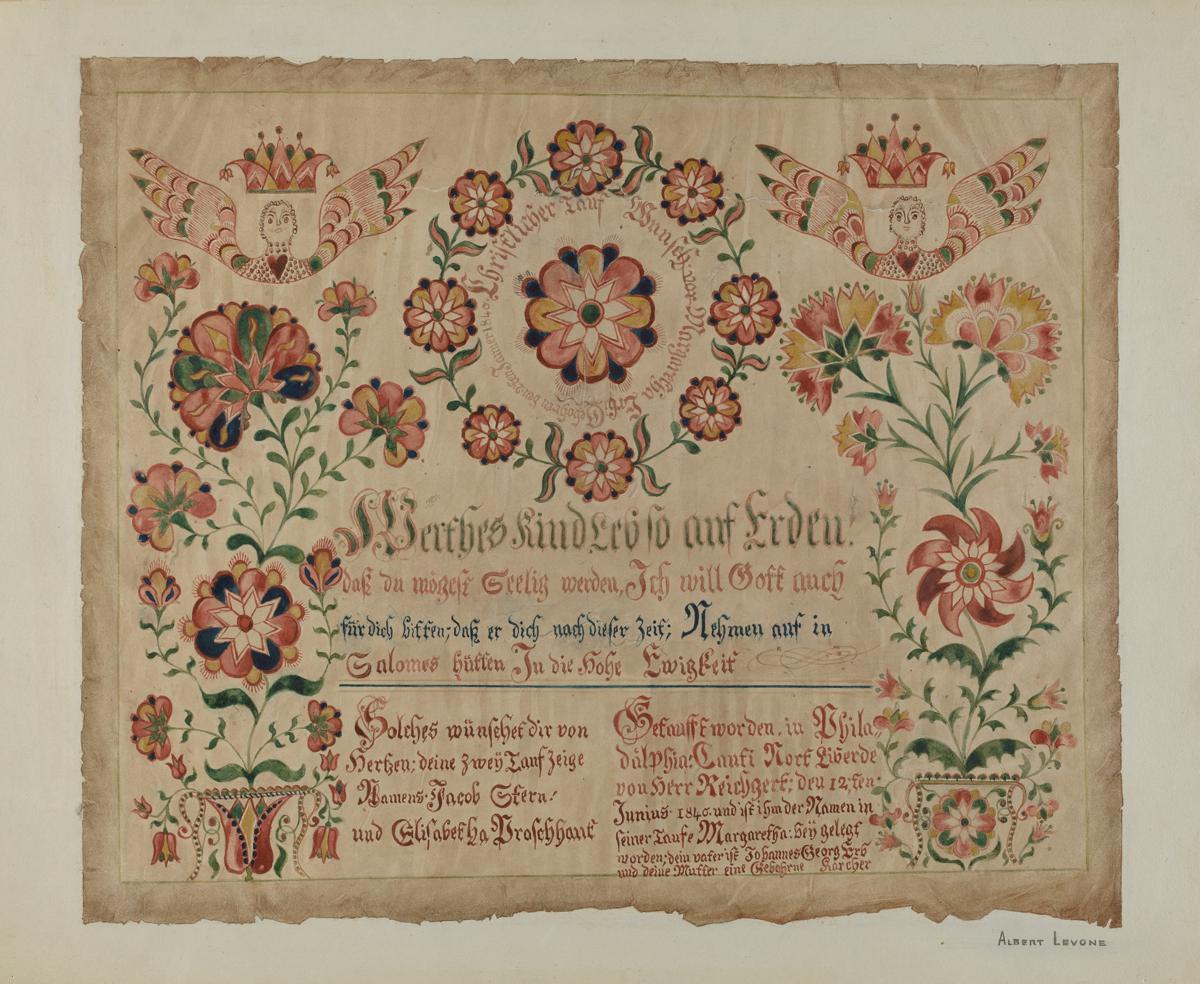 Christlicher Tauf Wunsch vor Margaretha Erb
Gebohren den Janner 1840.
Werthes Kind Leb so auf Erden!
daß du mögest Seelig werden, Ich will Gott auch
für dich bitten; daß er dich nach dieser Zeit; Nehmen auf in
Salomes hütten In die Hohe Ewigkeit
Solches wünschet dir von
Hertzen; deine zweÿ Tauf Zeige
Namens: Jacob Stern:
und Elisabetha Proschhant
Getaufft worden, in Phila=
dälphia: Caunti Nort Liberde
von Herr Reichgert; den 12;ten
Junius 1840. und ist ihm der Namen in
seiner Taufe Margaretha: beÿ gelegt
worden; dein vater ist Johannes Georg Erb
und deine Mutter eine Gebohrne Karcher
ALBERT LEVONE